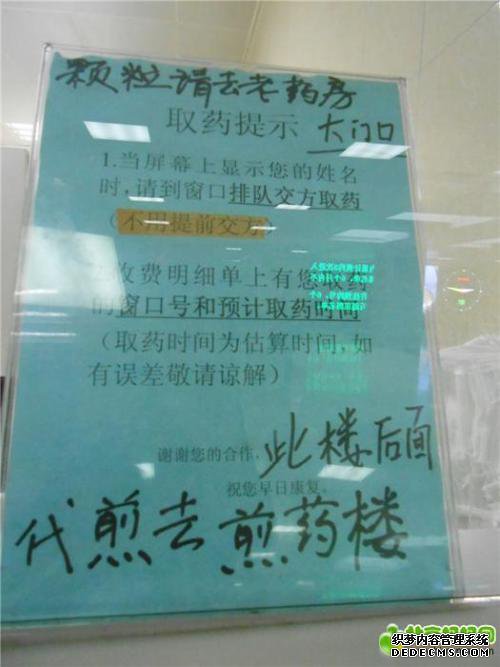 颗粒请去老药房
取药提示 大门口
1.当屏幕上显示您的姓名
时,请到窗口排队交方取药
(不用提前交方)
收费明细单上有您取药
的窗口号和预计取药时间
(取药时间为估算时间,如
有误差敬请谅解)
谢谢您的合作, 此楼后面
祝您早日康复。
代煎去煎药楼
织梦内容管理系统
DEDECMS.COM